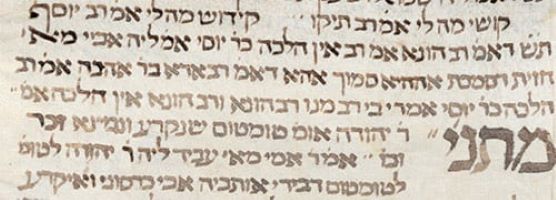 קושי מה לי אמ רב תיקו׳ קידוש מה לי אמ רב יוסף
תש דאמ רב הונא אמ רב אין הלכה כר יוסי אמ ליה אביי מא׳
חזית דסמכת אההיא סמוך אהא דאמ רב אדא בר אהבה אמ רב
הלכה כר יוסי אמרי בי רב מנו רב הונא ורב הונא אין הלכה אמ׳
מתני׳ ר יהודה אומ טומטום שנקרע ונמ׳נא זכר
וכו׳ אמר אמי מאי עביד ליה ר יהודה לטומ
לטומטום דבידי אותביה אבי כרסוני ואיקרע